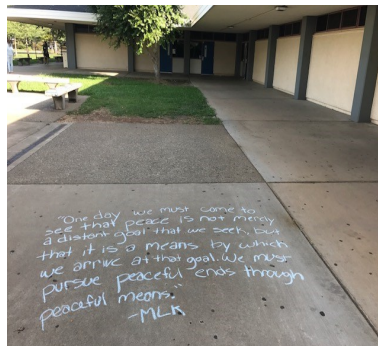 "One day we must come to
see that peace is not merely
a distant goal that we seek, but
that it is a means by which
we arrive at that goal. We must
pursue peaceful ends through
peaceful means."
-MLK